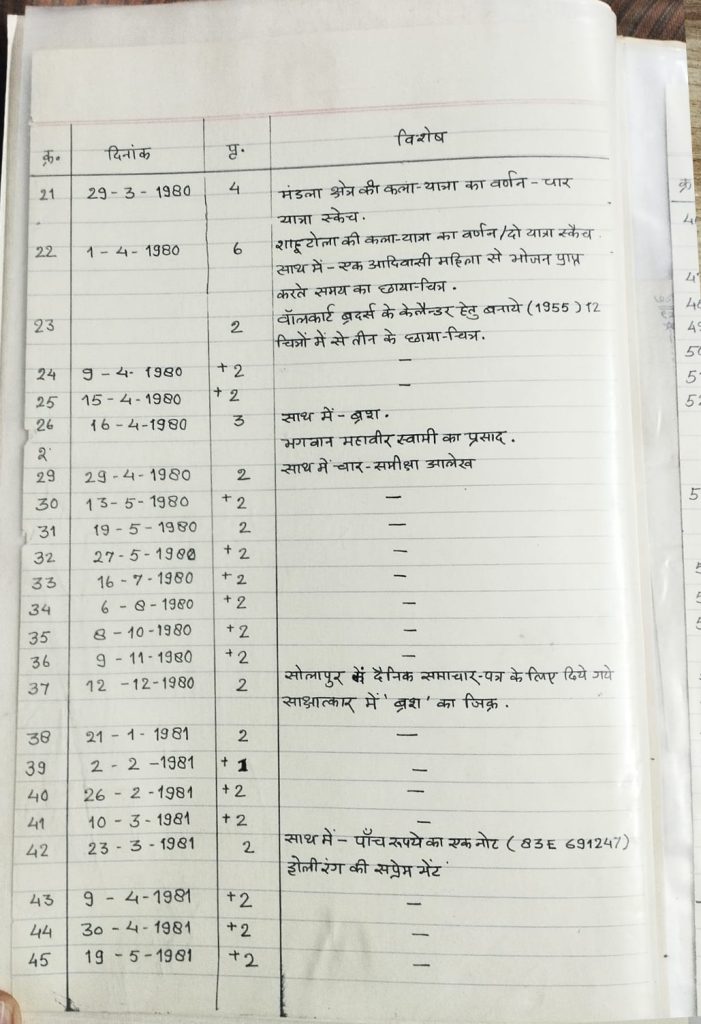 क्र. दिनांक पृ. विशेष
21 29-3-1980 4 मंडला क्षेत्र की कला-यात्रा का वर्णन - चार
यात्रा स्केच.
22 1-4-1980 6 शाहूटोला की कला-यात्रा का वर्णन/दो यात्रा स्केच.
साथ में - एक आदिवासी महिला से भोजन प्राप्त
करते समय का छाया-चित्र.
23 2 वॉलकार्ट ब्रदर्स के केलैन्डर हेतु बनाये (1955) 12
चित्रों में से तीन के छाया-चित्र.
24 9-4-1980 +2 —
25 15-4-1980 +2 —
26 16-4-1980 3 साथ में - ब्रश.
भगवान महावीर स्वामी का प्रसाद.
29 29-4-1980 2 साथ में चार-समीक्षा आलेख
30 13-5-1980 +2 —
31 19-5-1980 2 —
32 27-5-1980 +2 —
33 16-7-1980 +2 —
34 6-8-1980 +2 —
35 8-10-1980 +2 —
36 9-11-1980 +2 —
37 12-12-1980 2 सोलापुर में दैनिक समाचार-पत्र के लिए दिये गये
साक्षात्कार में 'ब्रश' का जिक्र.
38 21-1-1981 2 —
39 2-2-1981 +1 —
40 26-2-1981 +2 —
41 10-3-1981 +2 —
42 23-3-1981 2 साथ में - पाँच रूपये का एक नोट (83E 691247)
होली रंग की सप्रेम भेंट
43 9-4-1981 +2 —
44 30-4-1981 +2 —
45 19-5-1981 +2 —